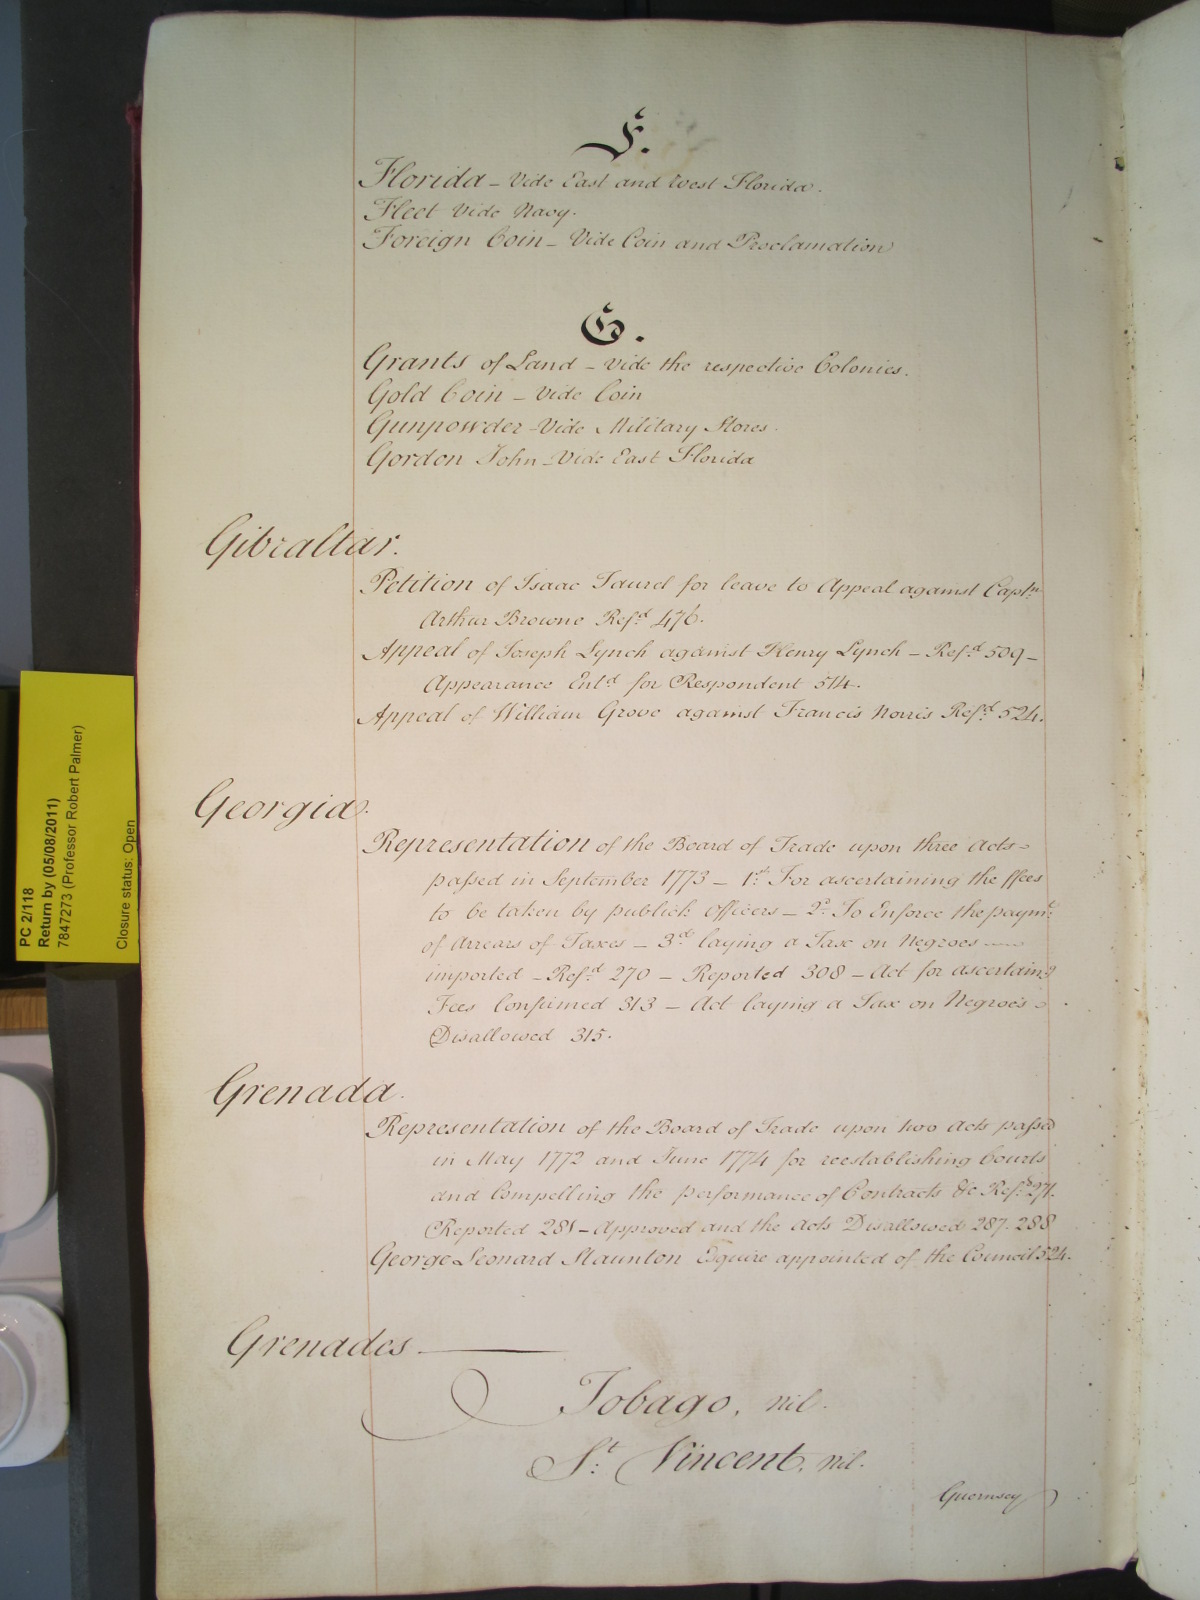 F.
Florida – Vide East and West Florida.
Fleet Vide Navy.
Foreign Coin – Vide Coin and Proclamation
G.
Grants of Land – Vide the respective Colonies.
Gold Coin – Vide Coin
Gunpowder – Vide Military Stores.
Gordon John – Vide East Florida
Gibraltar.
Petition of Isaac Taurel for leave to Appeal against Captn
Arthur Browne Refd 476.
Appeal of Joseph Lynch against Henry Lynch – Refd 509 –
Appearance Entd for Respondent 514.
Appeal of William Grove against Francis Norris Refd 524.
Georgia.
Representation of the Board of Trade upon three Acts =
passed in September 1773 – 1st For ascertaining the ffees
to be taken by publick Officers – 2d To Enforce the paymt
of Arrears of Taxes – 3d laying a Tax on Negroes
imported – Refd 270 – Reported 308 – Act for ascertaing
Fees Confirmed 313 – Act laying a Tax on Negroes =
Disallowed 315.
Grenada.
Representation of the Board of Trade upon two Acts passed
in May 1772 and June 1774 for reestablishing Courts
and Compelling the performance of Contracts &c Refd 271.
Reported 281 – Approved and the Acts Disallowed 287. 288
George Leonard Staunton Esquire appointed of the Council 524.
Grenades
Tobago, nil.
St Vincent, nil.
Guernsey
PC 2/118
Return by (05/08/2011)
7847273 (Professor Robert Palmer)
Closure status: Open